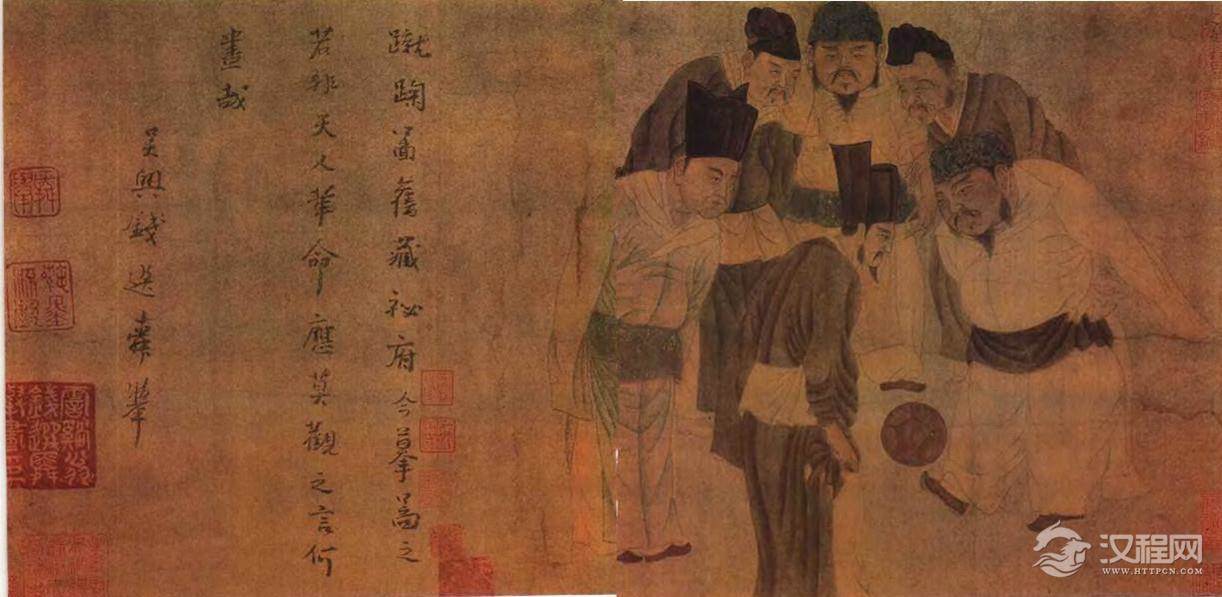 蹴踘啚舊藏祕府今摹啚之
若非天人革命應莫觀之言何
盡哉
吳興錢選舜舉
汉程网
WWW.HTTPCN.COM